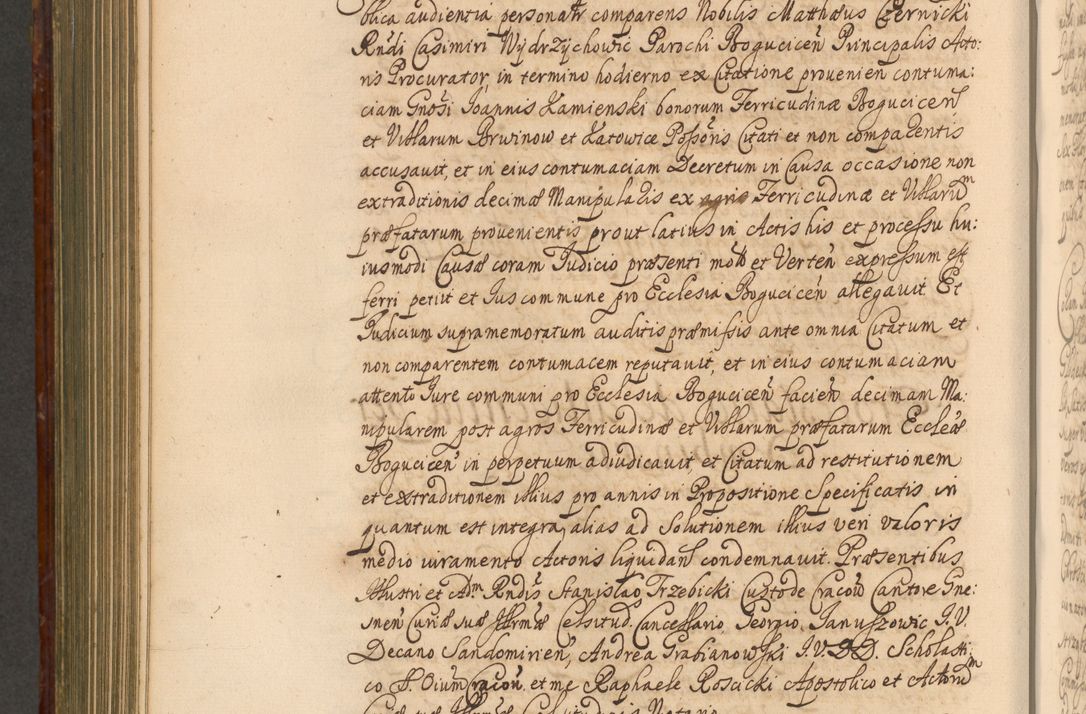 blica audientia personalr comparens Nobilis Matthæus Czernicki
Rndi Casimiri Wydrzychowic Parochi Bogucicen Principalis Acto:
ris Procurator, in termino hodierno ex Citatione provenien contuma:
ciam Gnosi Joannis Kamienski bonorum Ferricudinæ Bogucicen
et Villarum Brwinow et Katowice Possoris Citati et non comparentis
accusavit, et in eius contumaciam Decretum in Causa occasione non
extraditionis decimæ Manipularis ex agris Ferricudinæ et Villarum
præfatarum provenientis prout latius in Actis his et processu hu:
iusmodi Causæ coram Judicio præsenti mota et Verten expressum est
ferri petiit et Jus commune pro Ecclesia Bogucicen allegavit Et
Judicium supramemoratum auditis præmissis ante omnia Citatum et
non comparentem contumacem reputavit, et in eius contumaciam
attento Jure communi pro Ecclesia Bogucicen facien decimam Ma:
nipularem post agros Ferricudinæ et Villarum præfatarum Eccleæ
Bogucicen in perpetuum adiudicavit, et Citatum ad restitutionem
et extraditionem illius pro annis in Propositione Specificatis in
quantum est integra, alias ad Solutionem illius veri valoris
medio iuramento Actoris liquidan condemnavit. Præsentibus
Illustri et Adm Rndis Stanislao Trzebicki Custode Cracov Cantore Gne:
snen Curiæ suæ Illrmæ Celsitud. Cancellario, Georgio Januszowic J.V.
Decano Sandomirien, Andrea Grabianowski J.V.D.D. Scholasti
co S. Oium Cracov. et me Raphaele Roscicki Apostolico et Actorum